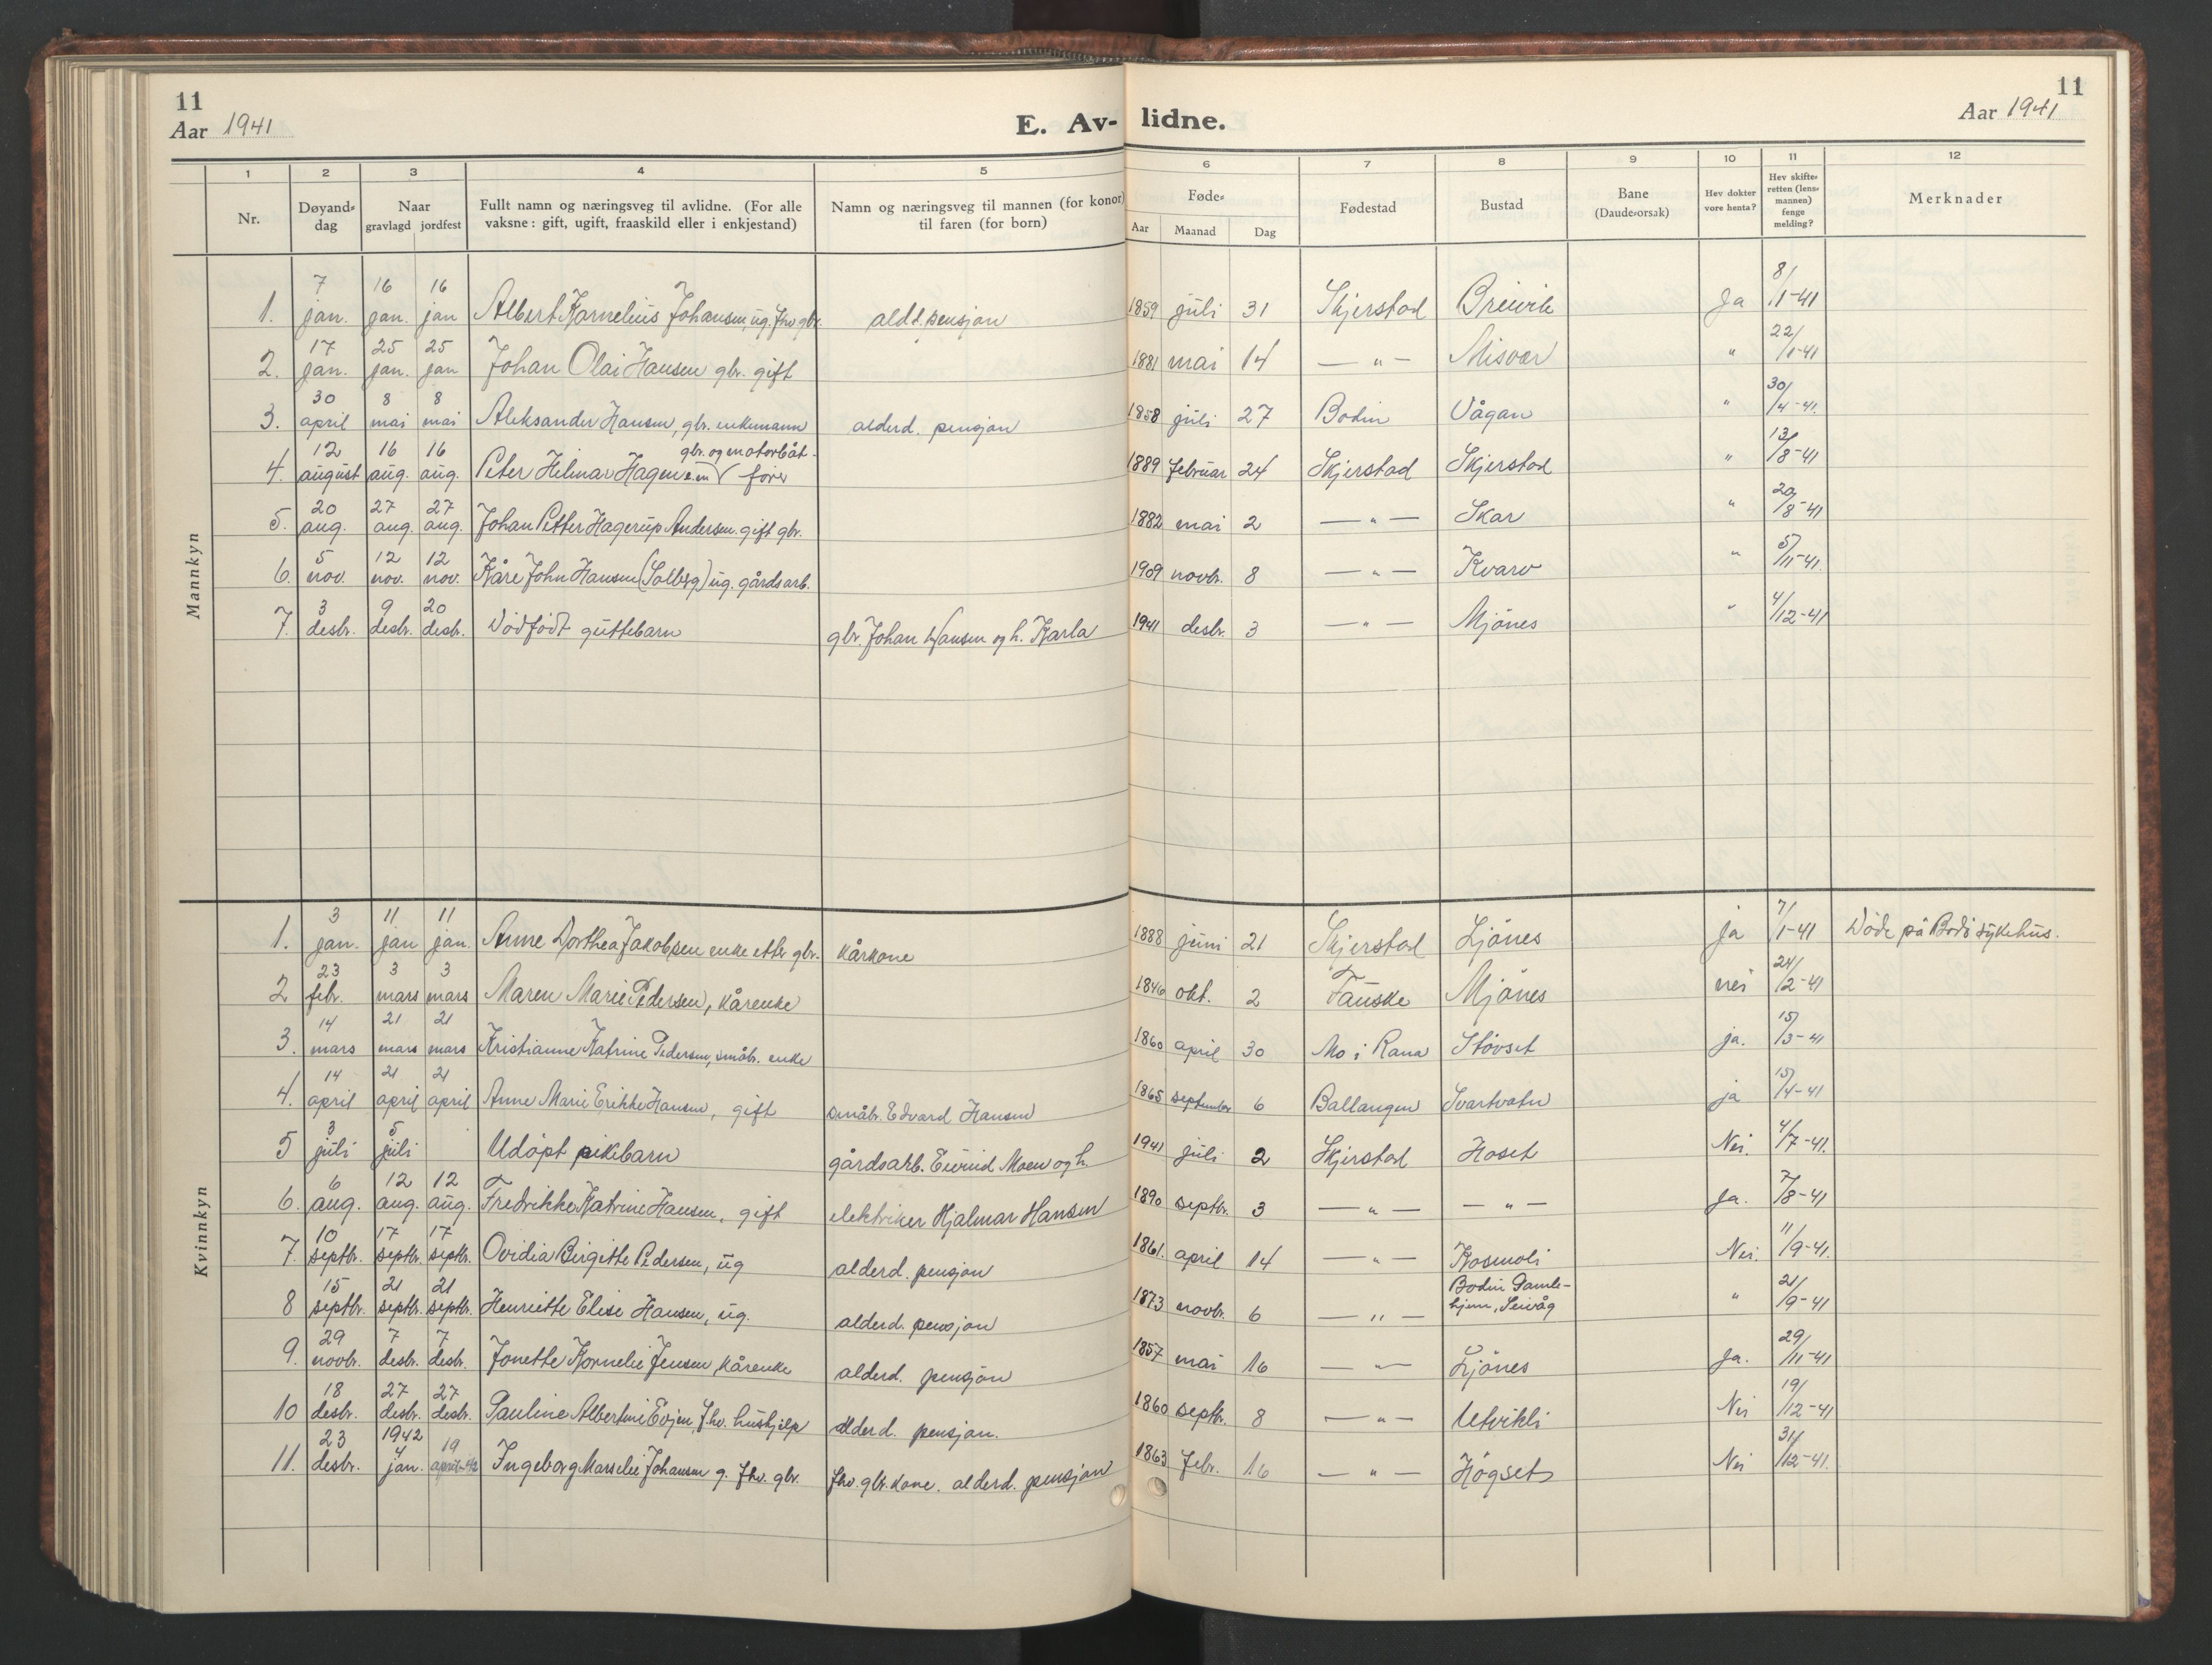 11
Aar 1941
E. Av-lidne.
11
Aar 1941
1 2 3 4 5 6 7 8 9 10 11 12
Nr.
Døyand-dag
Naar
gravlagd jordfest
Fullt namn og næringsveg til avlidne. (For alle
vaksne: gift, ugift, fraaskild eller i enkjestand)
Namn og næringsveg til mannen (for konor)
til faren (for born)
Føde-
Aar Maanad Dag
Fødestad
Bustad
Bane
(Daude-orsak)
Hev dokter
vore henta?
Hev skifte-
retten (lens-
mannen)
fenge
melding?
Merknader
Mannkyn
1. 7 jan. 16 jan. 16 jan Albert Kornelius Johansen, ug. fhv. gbr. aldd. pensjon 1859 juli 31 Skjerstad Breivik Ja 8/1-41
2. 17 jan. 25 jan. 25 jan Johan Olai Hansen gbr. gift 1881 mai 14 — " — Misvær " 22/1-41
3. 30 april 8 mai 8 mai Aleksander Hansen, gbr. enkemann alderd. pensjon 1858 juli 27 Bodin Vågan " 30/4-41.
4. 12 august 16 aug. 16 aug. Peter Hilmar Hagen e.m gbr. og motorbåt-fører 1889 februar 24 Skjerstad Skjerstad " 13/8-41
5. 20 aug. 27 aug. 27 aug. Johan Petter Hagerup Andersen. gift gbr. 1882 mai 2 — " — Skar " 20/8-41
6. 5 nov. 12 nov. 12 nov. Kåre John Hansen (Solberg) ug. gårdsarb. 1909 novbr. 8 — " — Kvarv " 5/11-41.
7. 3 desbr. 9 desbr. 20 desbr. Dödfödt guttebarn gbr. Johan Hansen og h. Karla 1941 desbr. 3 — " — Mjönes " 4/12-41
Kvinnkyn
1. 3 jan. 11 jan 11 jan. Anne Dorthea Jakobsen enke etter gbr. kårkone 1888 juni 21 Skjerstad Ljönes ja 7/1-41 Döde på Bodö sykehus.
2 23 febr. 3 mars 3 mars Maren Marie Pedersen, kårenke 1846 okt. 2 Fauske Mjönes nei 24/2-41
3. 14 mars 21 mars 21 mars Kristianne Katrine Pedersen, småbr. enke 1860 april 30 Mo i Rana Stövset ja. 15/3-41
4. 14 april 21 april 21 april Anne Marie Erikke Hansen, gift småbr. Edvard Hansen 1865 september 6 Ballangen Svartvatn ja 15/4-41
5 3 juli 5 juli Udöpt pikebarn gårdsarb. Eivind Moen og h. 1941 juli 2 Skjerstad Hoset Nei. 4/7-41.
6. 6 aug. 12 aug. 12 aug. Fredrikke Katrine Hansen, gift elektriker Hjalmar Hansen 1890 septbr. 3 — " — — " — Ja. 7/8-41
7. 10 septbr. 17 septbr. 17 septbr. Ovidia Birgitte Pedersen, ug alderd. pensjon 1861. april 14 — " — Kosmoli Nei. 11/9-41.
8 15 septbr. 21 septbr. 21 septbr. Henriette Elise Hansen, ug. alderd. pensjon 1873 novbr. 6 — " — Bodin Gamle-hjem, Seivåg " 21/9-41
9. 29 novbr. 7 desbr. 7 desbr. Jonette Kornelie Jensen, kårenke alderd. pensjon 1857 mai 16 — " — Ljönes Ja. 29/11-41
10 18 desbr. 27 desbr. 27 desbr. Pauline Albertine Evjen, fhv. hushjelp alderd. pensjon. 1860 septbr. 8 — " — Utvikli Nei 19/12-41
11. 23 desbr. 1942 4 jan. 19 april-42 Ingeborg Marselie Johansen g. fhv. gbr. fhv. gbr. kone. alderd. pensjon 1863 febr. 16 — " — Högset Nei 31/12-41.